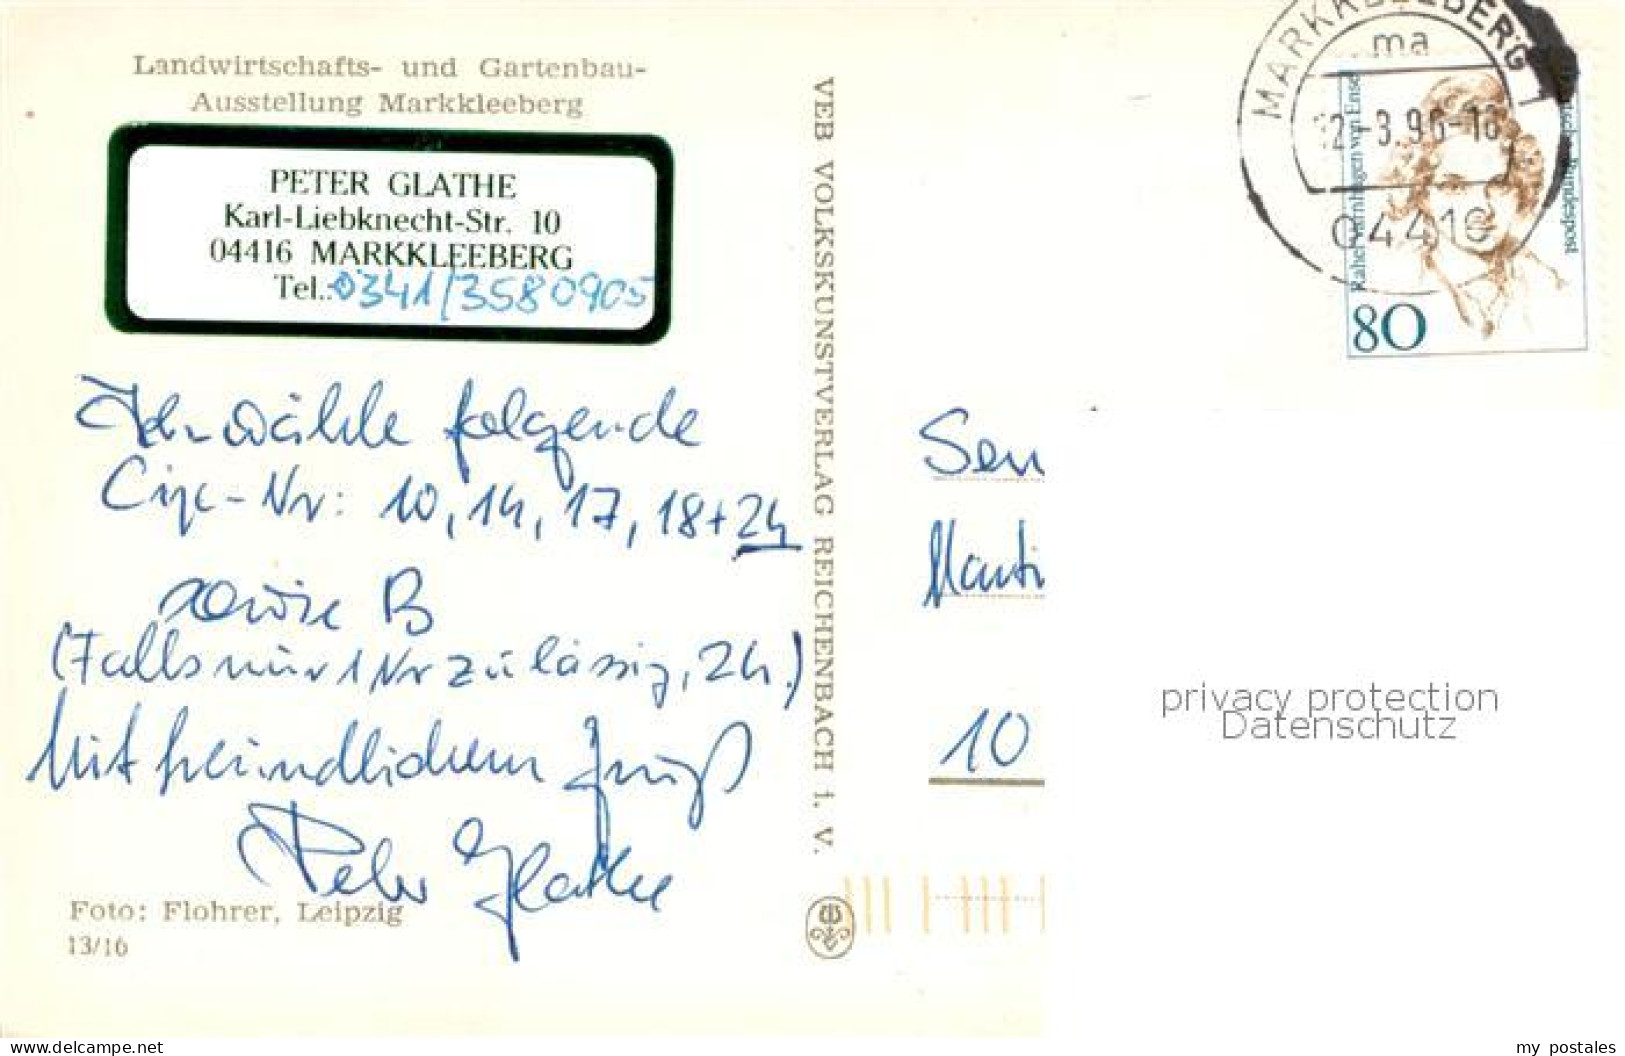 Landwirtschafts- und Gartenbau-
Ausstellung Markkleeberg
PETER GLATHE
Karl-Liebknecht-Str. 10
04416 MARKKLEEBERG
Tel.: 0341/3580905
Ich wähle folgende
Nr: 10, 14, 17, 18 + 24
sowie B
(Falls nur 1 Nr zulässig, 24.)
Mit freundlichem Gruß
Peter Glathe
Foto: Flohrer, Leipzig
13/16
VEB VOLKSKUNSTVERLAG REICHENBACH i. V.
MARKKLEEBERG 1
ma
-3.96-18
04416
Rahel Varnhagen von Ense
Deutsche Bundespost
80
Sen
Marti
10
privacy protection
Datenschutz
www.delcampe.net
my_postales